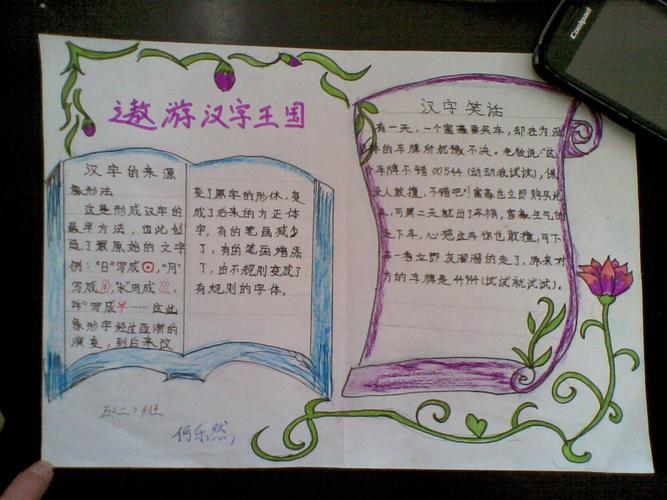 遨游汉字王国
汉字的来源
象形法
这是形成汉字的
最早方法，由此创
造了最原始的文字
例："日"写成，"月"
写成，"水"写成，
"牛"写成……这些
象形字经过逐渐的
演变，到后来改
变了原字的形体，变
成了后来的方正体
字，有的笔画减少
了，有的笔画增添
了，由不规则变成了
有规则的字体。
五(二)班
何乐然
汉字笑话
有一天，一个富豪要买车，却在为
车的车牌所犹豫不决。老板说："这
个车牌不错00544(动动我试试)，保
没人敢撞，不错吧！富豪也立即购买
车，可第二天就出了车祸，富豪生气的
走下车，心想这车你也敢撞，可下
车一看立即灰溜溜的走了，原来对
方的车牌是44944(试试就试试)。
Coolpad